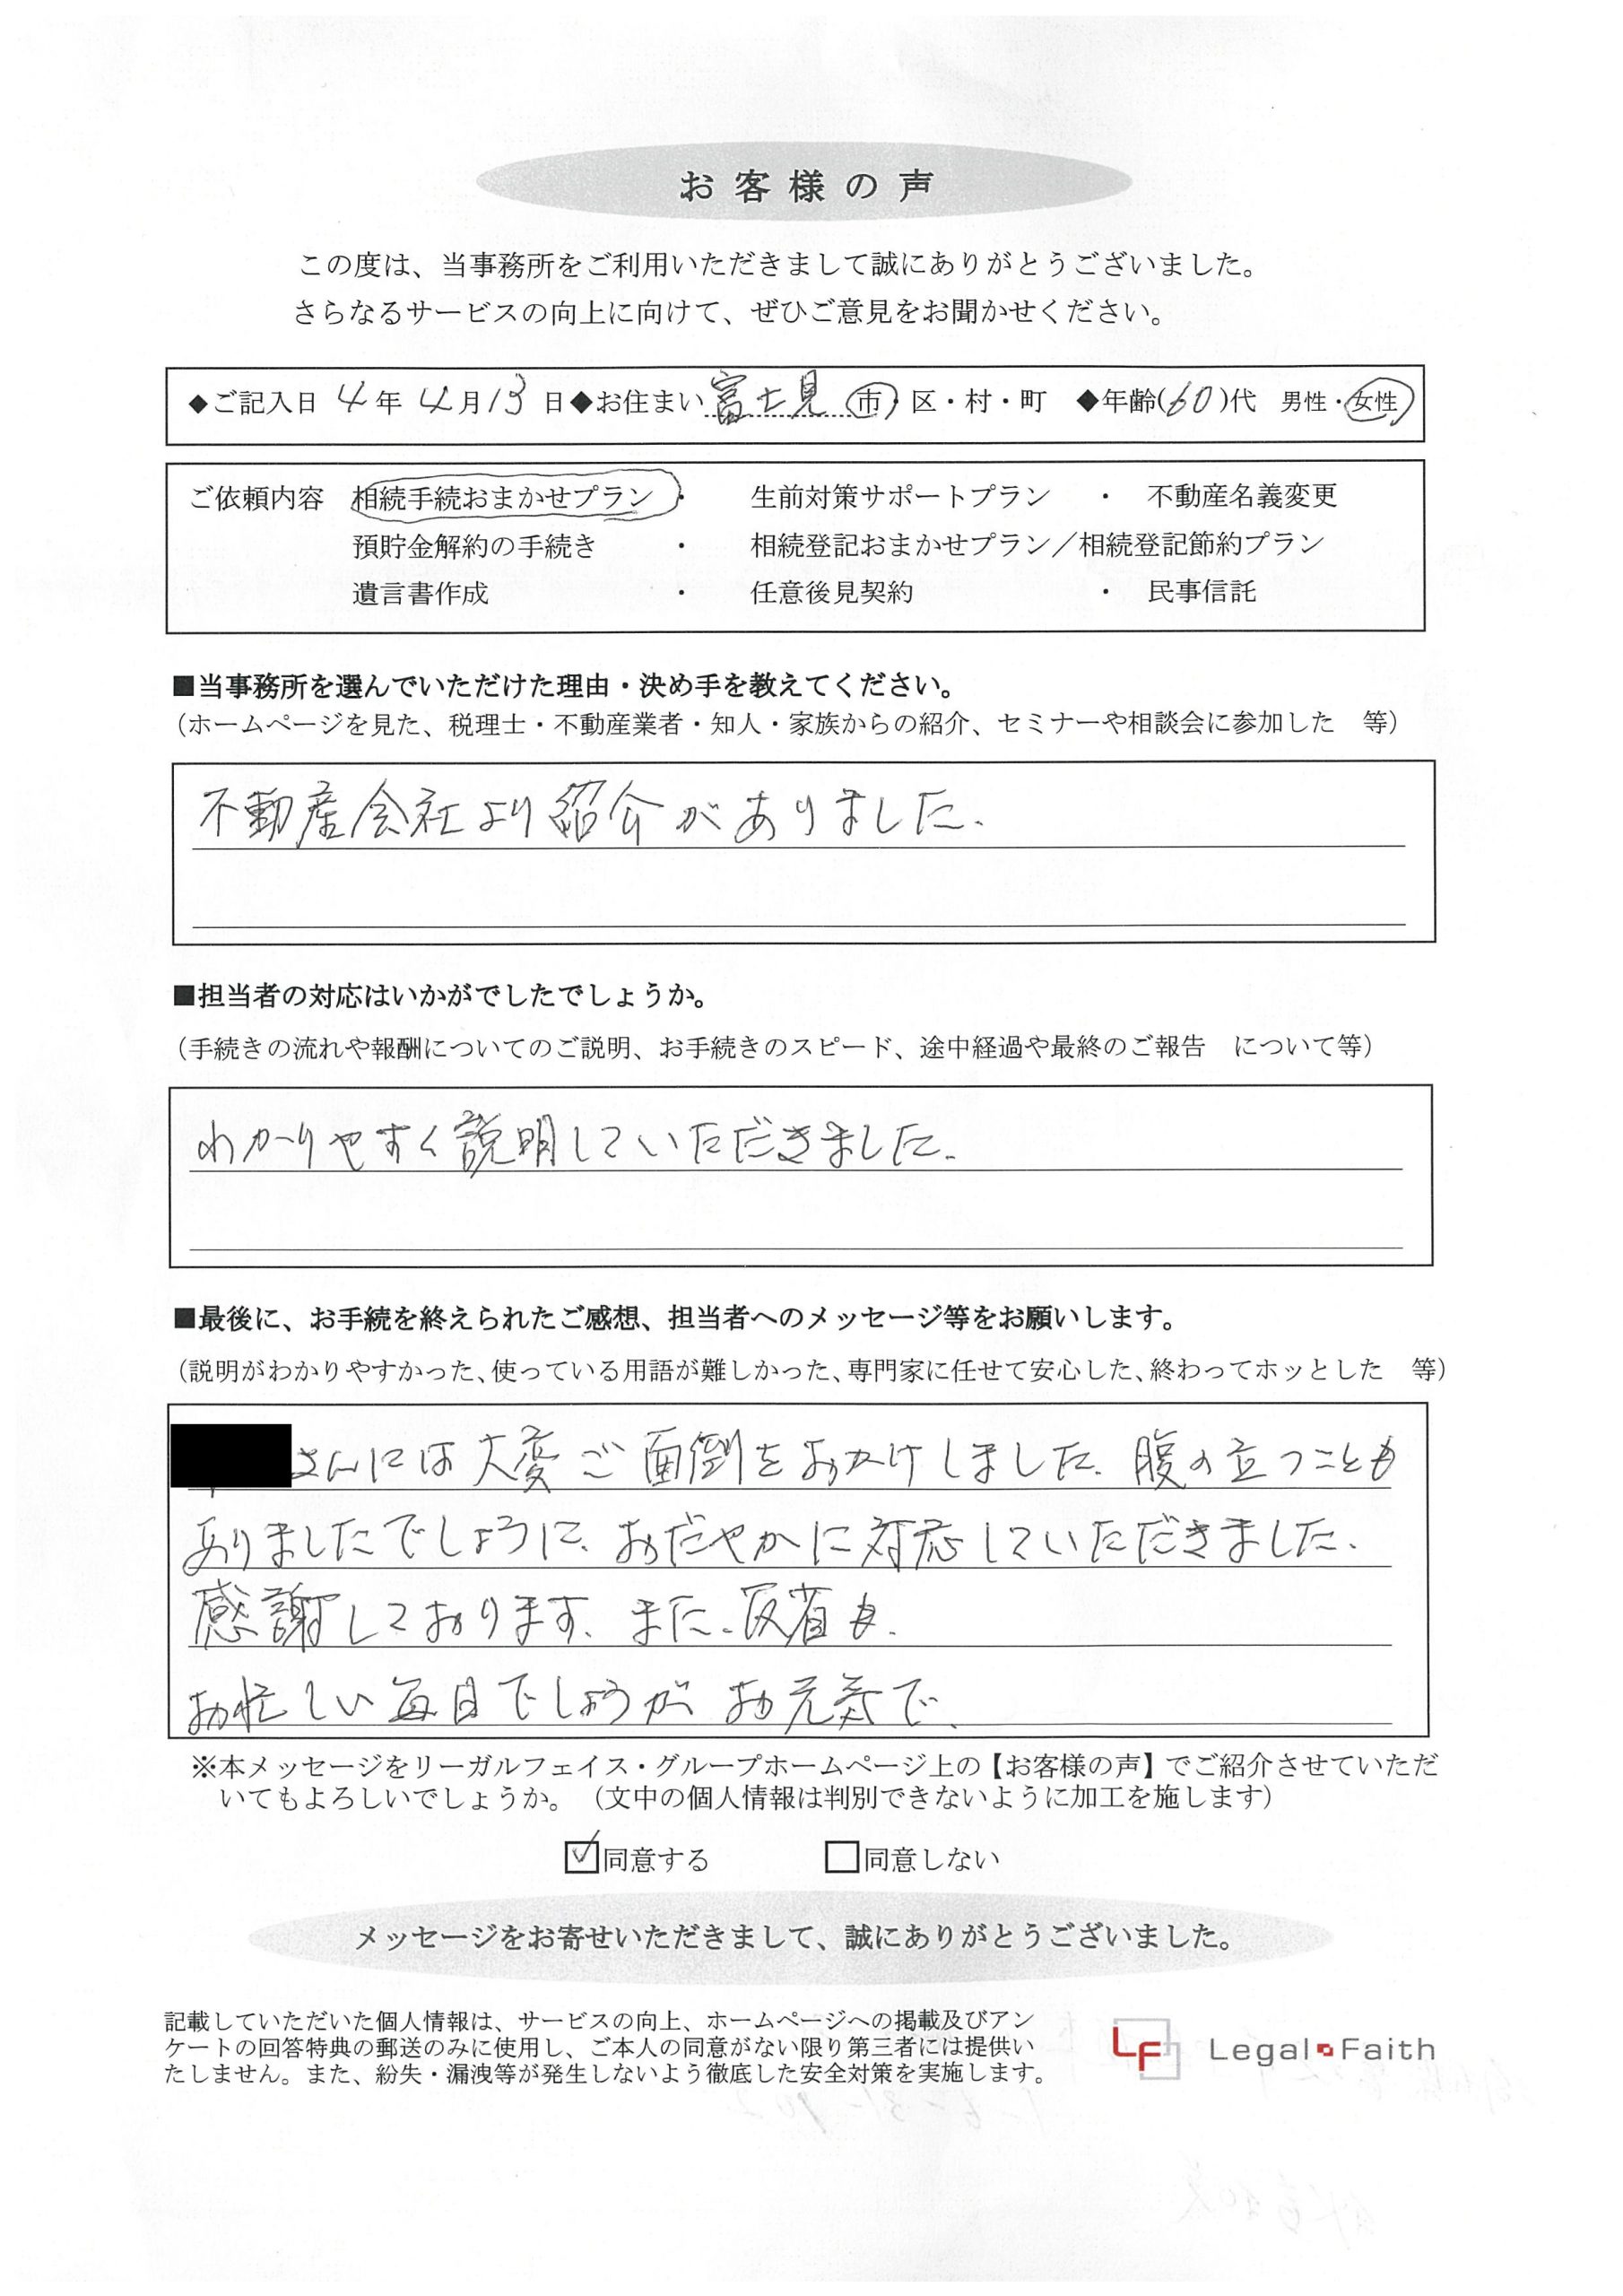 お客様の声
この度は、当事務所をご利用いただきまして誠にありがとうございました。
さらなるサービスの向上に向けて、ぜひご意見をお聞かせください。
◆ご記入日 4年 4月13日◆お住まい 富士見 市・区・村・町 ◆年齢(60)代 男性・女性
ご依頼内容 相続手続おまかせプラン ・ 生前対策サポートプラン ・ 不動産名義変更
預貯金解約の手続き ・ 相続登記おまかせプラン／相続登記節約プラン
遺言書作成 ・ 任意後見契約 ・ 民事信託
■当事務所を選んでいただけた理由・決め手を教えてください。
（ホームページを見た、税理士・不動産業者・知人・家族からの紹介、セミナーや相談会に参加した 等）
不動産会社より紹介がありました.
■担当者の対応はいかがでしたでしょうか。
（手続きの流れや報酬についてのご説明、お手続きのスピード、途中経過や最終のご報告 について等）
わかりやすく説明していただきました.
■最後に、お手続を終えられたご感想、担当者へのメッセージ等をお願いします。
（説明がわかりやすかった、使っている用語が難しかった、専門家に任せて安心した、終わってホッとした 等）
さんには大変ご面倒をおかけしました. 腹の立つことも
ありましたでしょうに、おだやかに対応していただきました.
感謝しております、また、反省も.
お忙しい毎日でしょうが お元気で、
※本メッセージをリーガルフェイス・グループホームページ上の【お客様の声】でご紹介させていただ
いてもよろしいでしょうか。（文中の個人情報は判別できないように加工を施します）
☑同意する □同意しない
メッセージをお寄せいただきまして、誠にありがとうございました。
記載していただいた個人情報は、サービスの向上、ホームページへの掲載及びアン
ケートの回答特典の郵送のみに使用し、ご本人の同意がない限り第三者には提供い
たしません。また、紛失・漏洩等が発生しないよう徹底した安全対策を実施します。
LF Legal Faith